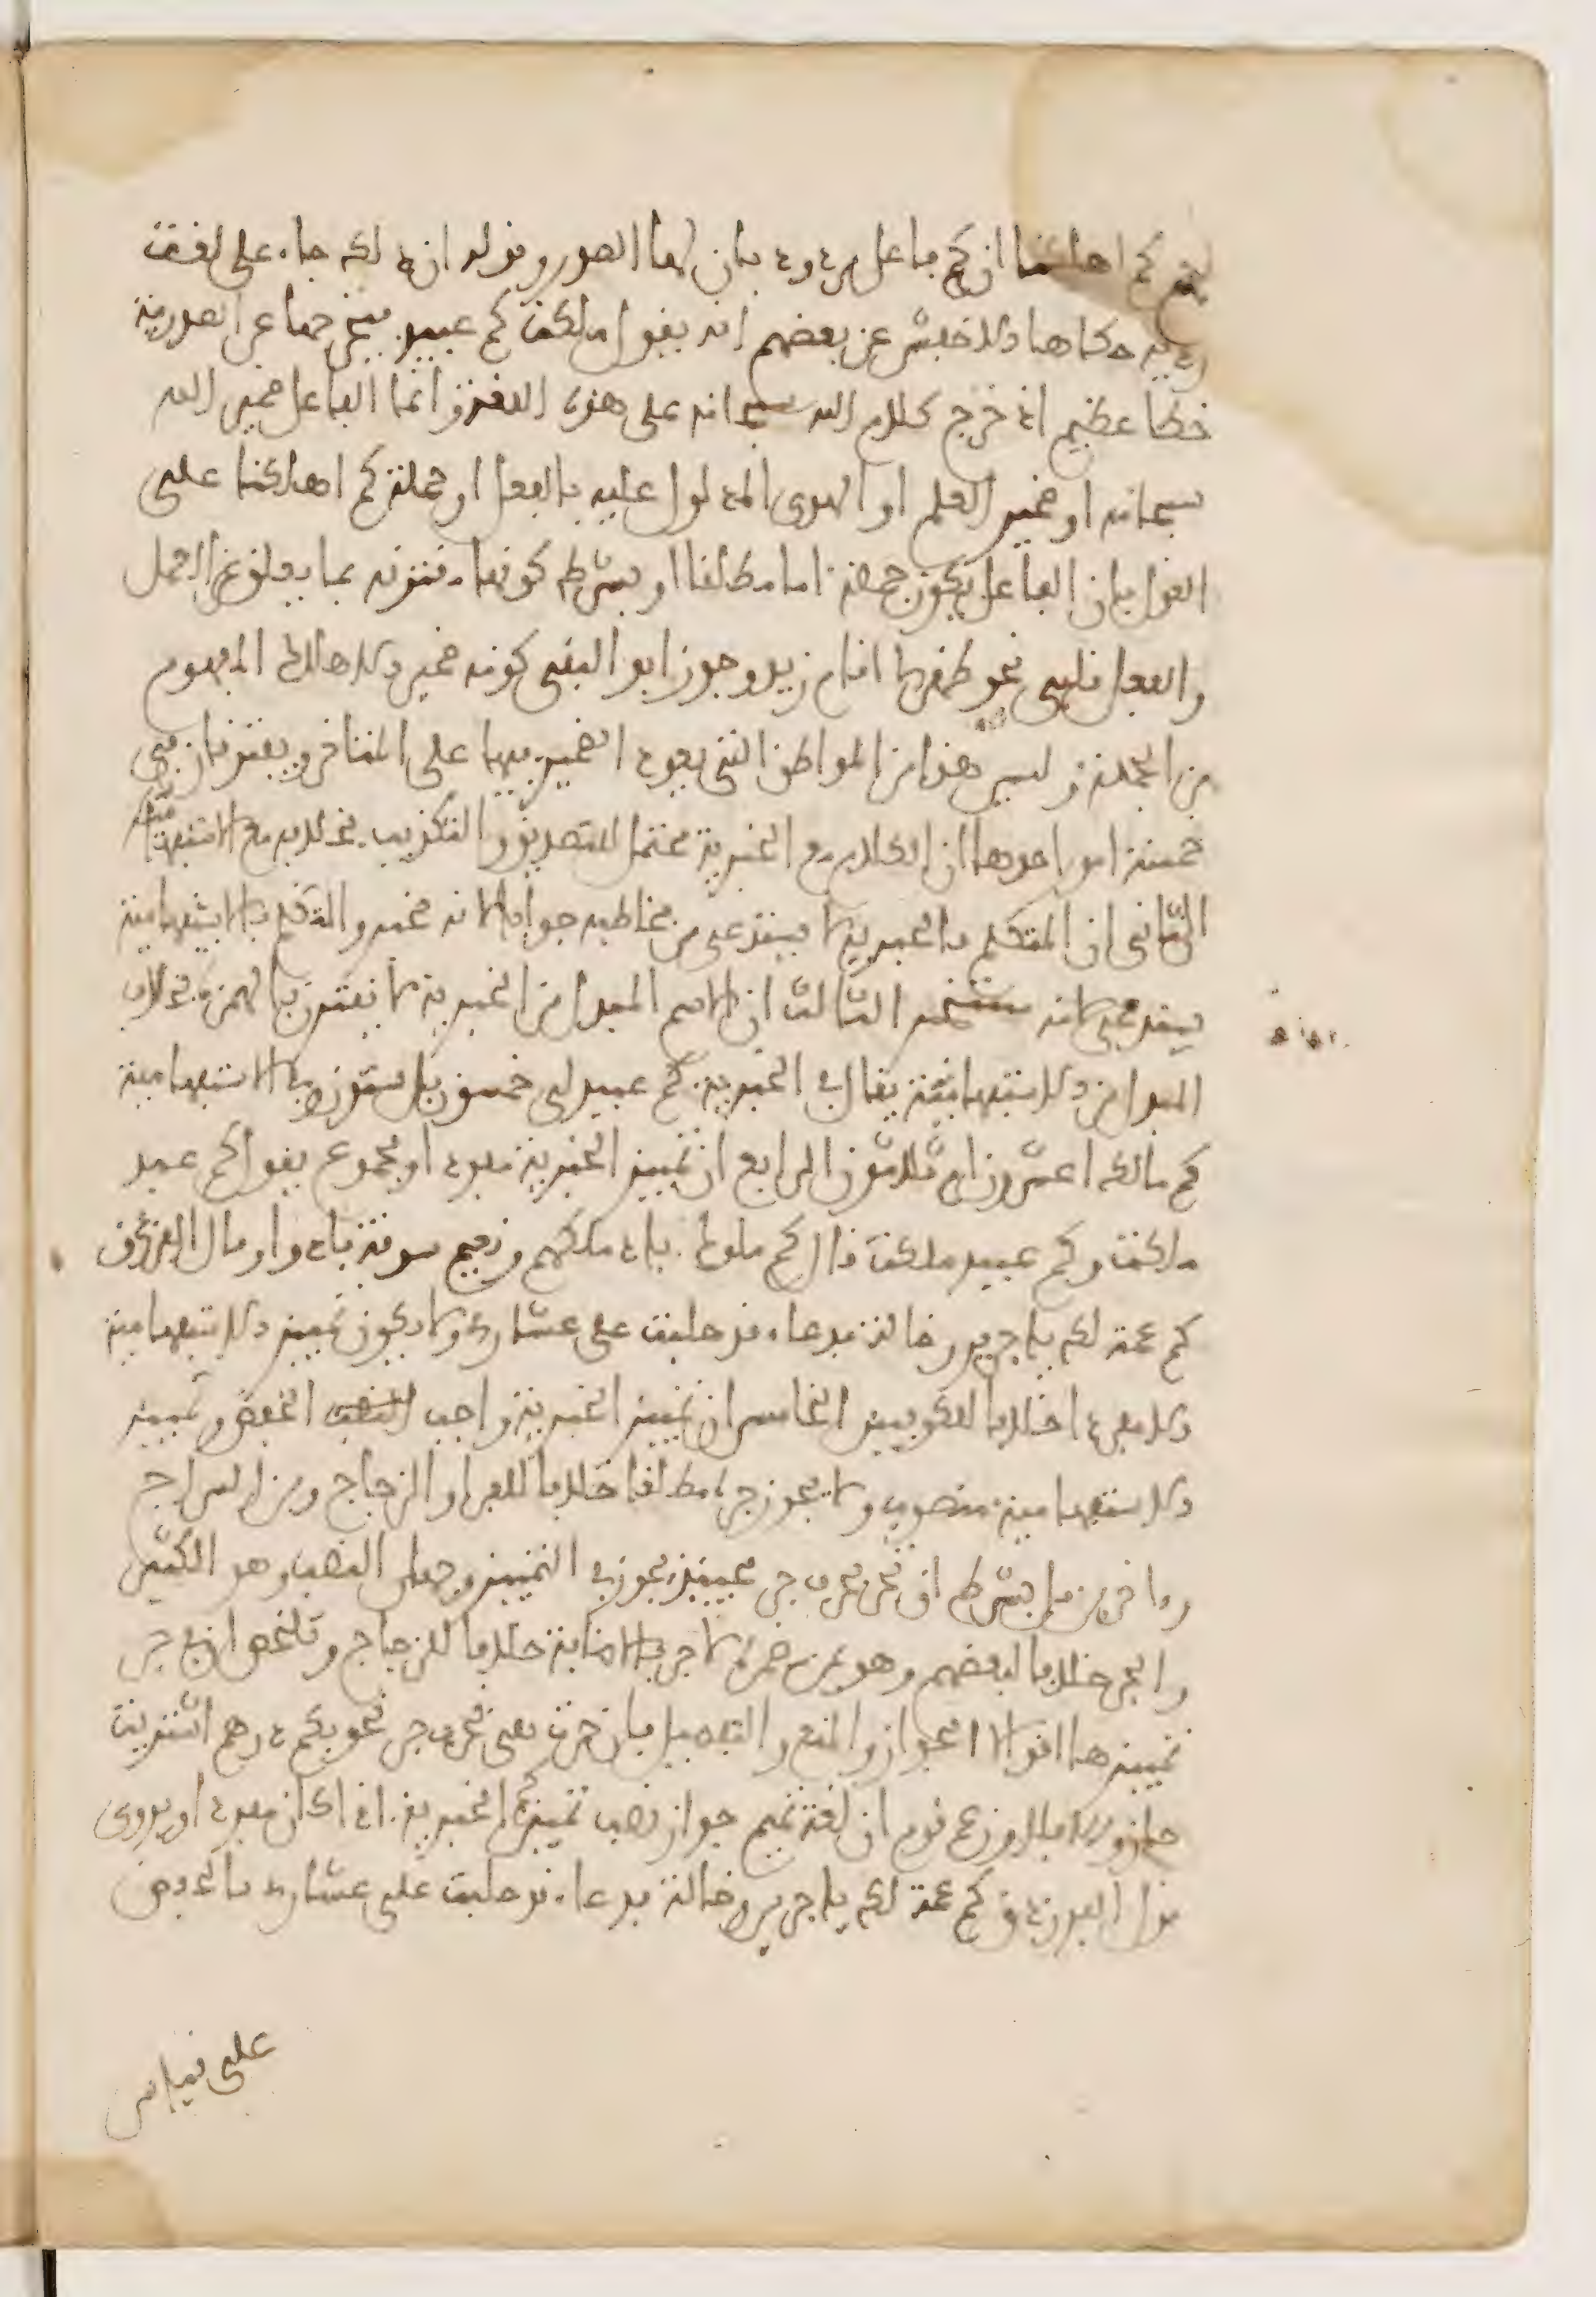 لهم كم اهلكنا ان كم فاعل مردود بان لها الصدر وقوله ان ذلك جاء على لغة
رديه حكاها الاخفش عن بعضهم انه يقول ملكت كم عبيد فيخرجها عن الصدرية
خطا عظيم اذ خرج كلام الله سبحانه على هذه اللغة وانما الفاعل ضمير الله
سبحانه او ضمير العلم او الهدى المدلول عليه بالفعل او جملة كم اهلكنا على
القول بان الفاعل يكون جملة اما مطلقا او بشرط كونها مقترنة بما يعلق عن العمل
والفعل قلبى نحو ظهر لى اقام زيد وجوز ابو البقى كونه ضمير الاهلاك المفهوم
من الجملة وليس هذا من المواطن التى يعود الضمير فيها على المتاخر ويفترقان فى
خمسة امور احدها ان الكلام مع الخبرية محتمل للتصديق والتكذيب بخلافه مع الاستفهامية
الثانى ان المتكلم بالخبرية لا يستدعى من مخاطبه جوابا لانه مخبر والمتكلم بالاستفهامية
يستدعيه لانه مستخبر الثالث ان الاسم المبدل من الخبرية لا يقترن بالهمزة بخلاف
المبدل من الاستفهامية يقال فى الخبرية كم عبيد لى خمسون بل ستون وفى الاستفهامية
كم مالك اعشرون ام ثلاثون الرابع ان تمييز الخبرية مفرد او مجموع يقول كم عبد
ملكت وكم عبيد ملكت قال كم ملوك باد ملكهم ونعيم سوقة بادوا وقال الفرزدق
كم عمة لك يا جرير وخالة فدعاء قد حلبت على عشارى ولا يكون تمييز الاستفهامية
الا مفردا خلافا للكوفيين الخامس ان تمييز الخبرية واجب الخفض وتمييز
الاستفهامية منصوب ولا يجوز جره مطلقا خلافا للفراء والزجاج وبن السراج
واخرين بل بشرط ان تجر بحرف جر فحينئذ يجوز فى التمييز وجهان النصب وهو الكثير
والجر خلافا لبعضهم وهو بمن مضمرة لا جر بالاضافة خلافا للزجاج وتلخص ان فى جر
تمييزها اقوالا الجواز والمنع والتفصيل فان جرت هى بحرف جر نحو بكم درهم اشتريت
جاز والا فلا وزعم قوم ان لغة تميم جواز نصب تمييز كم الخبرية اذا كان مفردا ويروى
قول الفرزدق كم عمة لك يا جرير وخالة فدعاء قد حلبت على عشارى بالخفض
على قياس